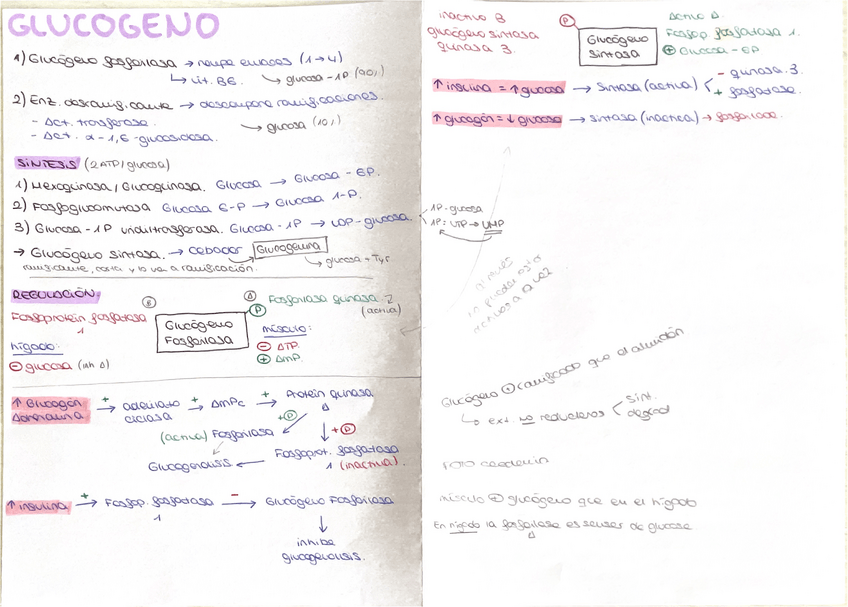 GLUCOGENO
1) Glucógeno fosforilasa → rompe enlaces (1→4)
↳ vit. B6 ↘ glucosa-1P (90%)
2) Enz. desramificante → descompone ramificaciones.
- Act. transferasa. ↘ glucosa (10%)
- Act. α-1,6-glucosidasa.
SÍNTESIS (2ATP/glucosa)
1) Hexoquinasa / Glucoquinasa. Glucosa → Glucosa-6P.
2) Fosfoglucomutasa Glucosa 6-P → Glucosa 1-P.
3) Glucosa-1P uridiltransferasa. Glucosa-1P → UDP-glucosa.
1P-glucosa
1P = UTP → UMP
→ Glucógeno sintasa. → cebador Glucogenina
ramificante, corta y lo une a ramificación. ↘ glucosa + Tyr
REGULACIÓN
Fosfoprotein fosfatasa
1
B
Glucógeno
Fosforilasa
A
P
Fosforilasa quinasa 2
(activa)
hígado:
⊖ glucosa (inh A)
músculo:
⊖ ATP
⊕ AMP
↑ Glucagón
Adrenalina
+ → adenilato
ciclasa
+ → AMPc + → Protein quinasa
A
+P
(activa) Fosforilasa
↓ + P
Glucogenolisis ← Fosfoprot. fosfatasa
1 (inactiva).
↑ insulina + → Fosfop. fosfatasa - → Glucógeno Fosforilasa
1
↓
inhibe
glucogenolisis.
inactiva B
glucógeno sintasa
quinasa 3.
P
Glucógeno
Sintasa
Activa A.
Fosfop. fosfatasa 1.
⊕ Glucosa-6P
↑ insulina = ↑ glucosa → Sintasa (activa) - quinasa 3.
+ fosfatasa.
↑ glucagón = ↓ glucosa → Sintasa (inactiva) →
Glucógeno ⊕ ramificado que el almidón
↳ ext. no reductores sínt.
degrad
músculo ⊕ glucógeno que en el hígado
En hígado la fosforilasa es sensor de glucosa
A